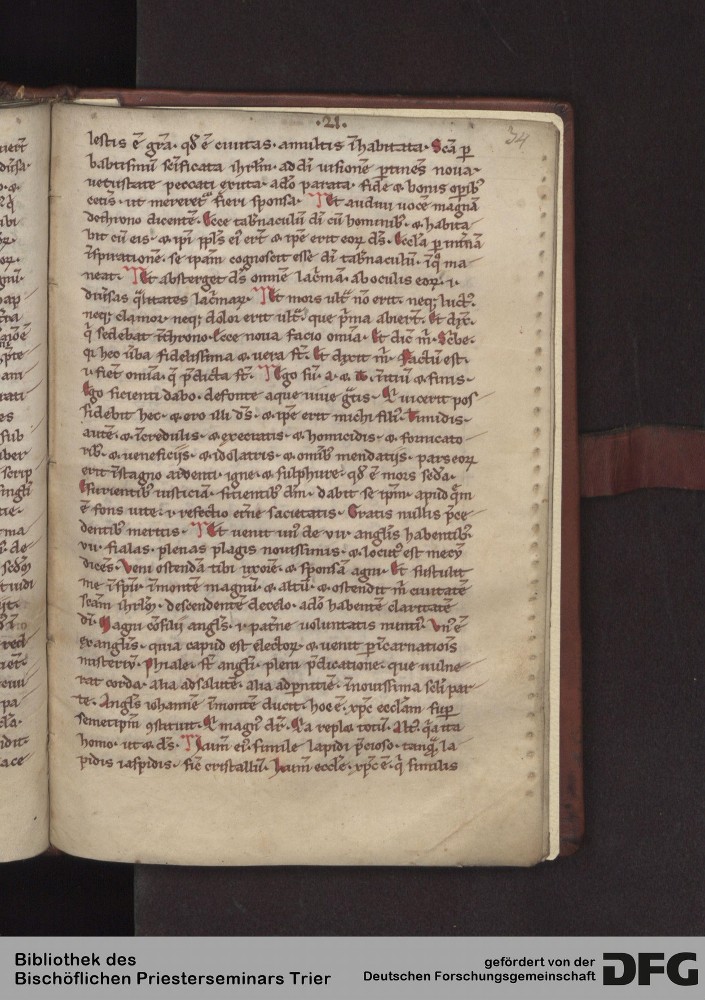 ·21·
34
lestis ē gr̄a· qđ ē ciuitas· amultis īhabitata· Scā p
babtismū sc̄ificata ihrl̄m· ad dī uisionē ptinēs noua·
uetustate peccati exuta· ado parata· fide & bonis opib;
cetis· ut mereret fieri sponsa· Et audiui uocē magnā
dethrono dicentē· Ecce tabnaculū dī cū hominib; & habita
bit cū eis· & ip̄i ppl̄s ei erūt & ip̄e erit eoꝝ d̄s· Eccl̄a p
īspirationē· se ipam cognoscit esse dī tabnaculū·
neat· Et absterget d̄s omnē lac̄mā· ab oculis eoꝝ· ı·
diūsas q̄litates lac̄maꝝ· Et mors ult̄ nō erit· neq; luct;
neq; clamor neq; dolor erit ult̄· que p̄ma abierūt· Et dix̄·
q̄ sedebat īthrono· Ecce noua facio om̄ia· Et dic̄ m̄· Sc̄be·
qꝛ hec ūba fidelissima & uera st̄· Et dixit m̄· Factū est·
ı· fiēt om̄ia· q̄ p̄dicta st̄· Ego sū· a· & ω· initiū & finis·
Ego sicienti dabo· defonte aque uiue ḡtis· Q uicerit pos
sidebit hec· & ero illi d̄s· & ip̄e erit michi fili;· Timidis·
autē· & īcredulis· & execratis· & homicidis· & fornicato
rib; & ueneficijs· & idolatris· & omīb; mendatijs· pars eoꝝ
erit īstagno ardenti· igne· & sulphure· qđ ē mors sc̄da·
Esurientib; iusticiā· sitientib; d̄m· dabit se ip̄m· apud q̄m
ē fons uite· ı· refectio et̄ne sacietatis· Gratis nullis p̄ce
dentib; meritis· Et uenit un; de vıı· angl̄is habentib;
vıı· fialas· plenas plagis nouissimis· & locut; est mecū
dicēs· Veni ostendā tibi uxorē· & sponsā agni· Et sustulit
me īsp̄u· īmontē magnū· & altū· & ostendit m̄ ciuitatē
sc̄am ihrl̄m· descendentē decelo· ado habentē claritatē
dī· Magni cōsilij angl̄s· ı· pat̄ne uoluntatis nunti;· Vn; ē
ex angl̄is· quia capud est electoꝝ· & uenit p īcarnatiōis
misteriū· Phiale· st̄ angl̄i· pleni p̄dicatione· que uulne
rat corda· alia adsalutē· alia adpnitiē· īnouissima sc̄li par
te· Angl̄s iohannē īmontē ducit· hoc ē· xp̄c eccl̄am sup
semetip̄m ꝯstituit· Q magn; dr̄· Qa replet totū· Alt;· q̄a ita
homo· ut & d̄s· Lum̄ ei;· simile lapidi p̄cioso· tanq̄ la
pidis iaspidis· sic̄ cristallū· Lum̄ eccl̄e· xp̄c ē· q̄ similis
Bibliothek des
Bischöflichen Priesterseminars Trier
gefördert von der
Deutschen Forschungsgemeinschaft
DFG